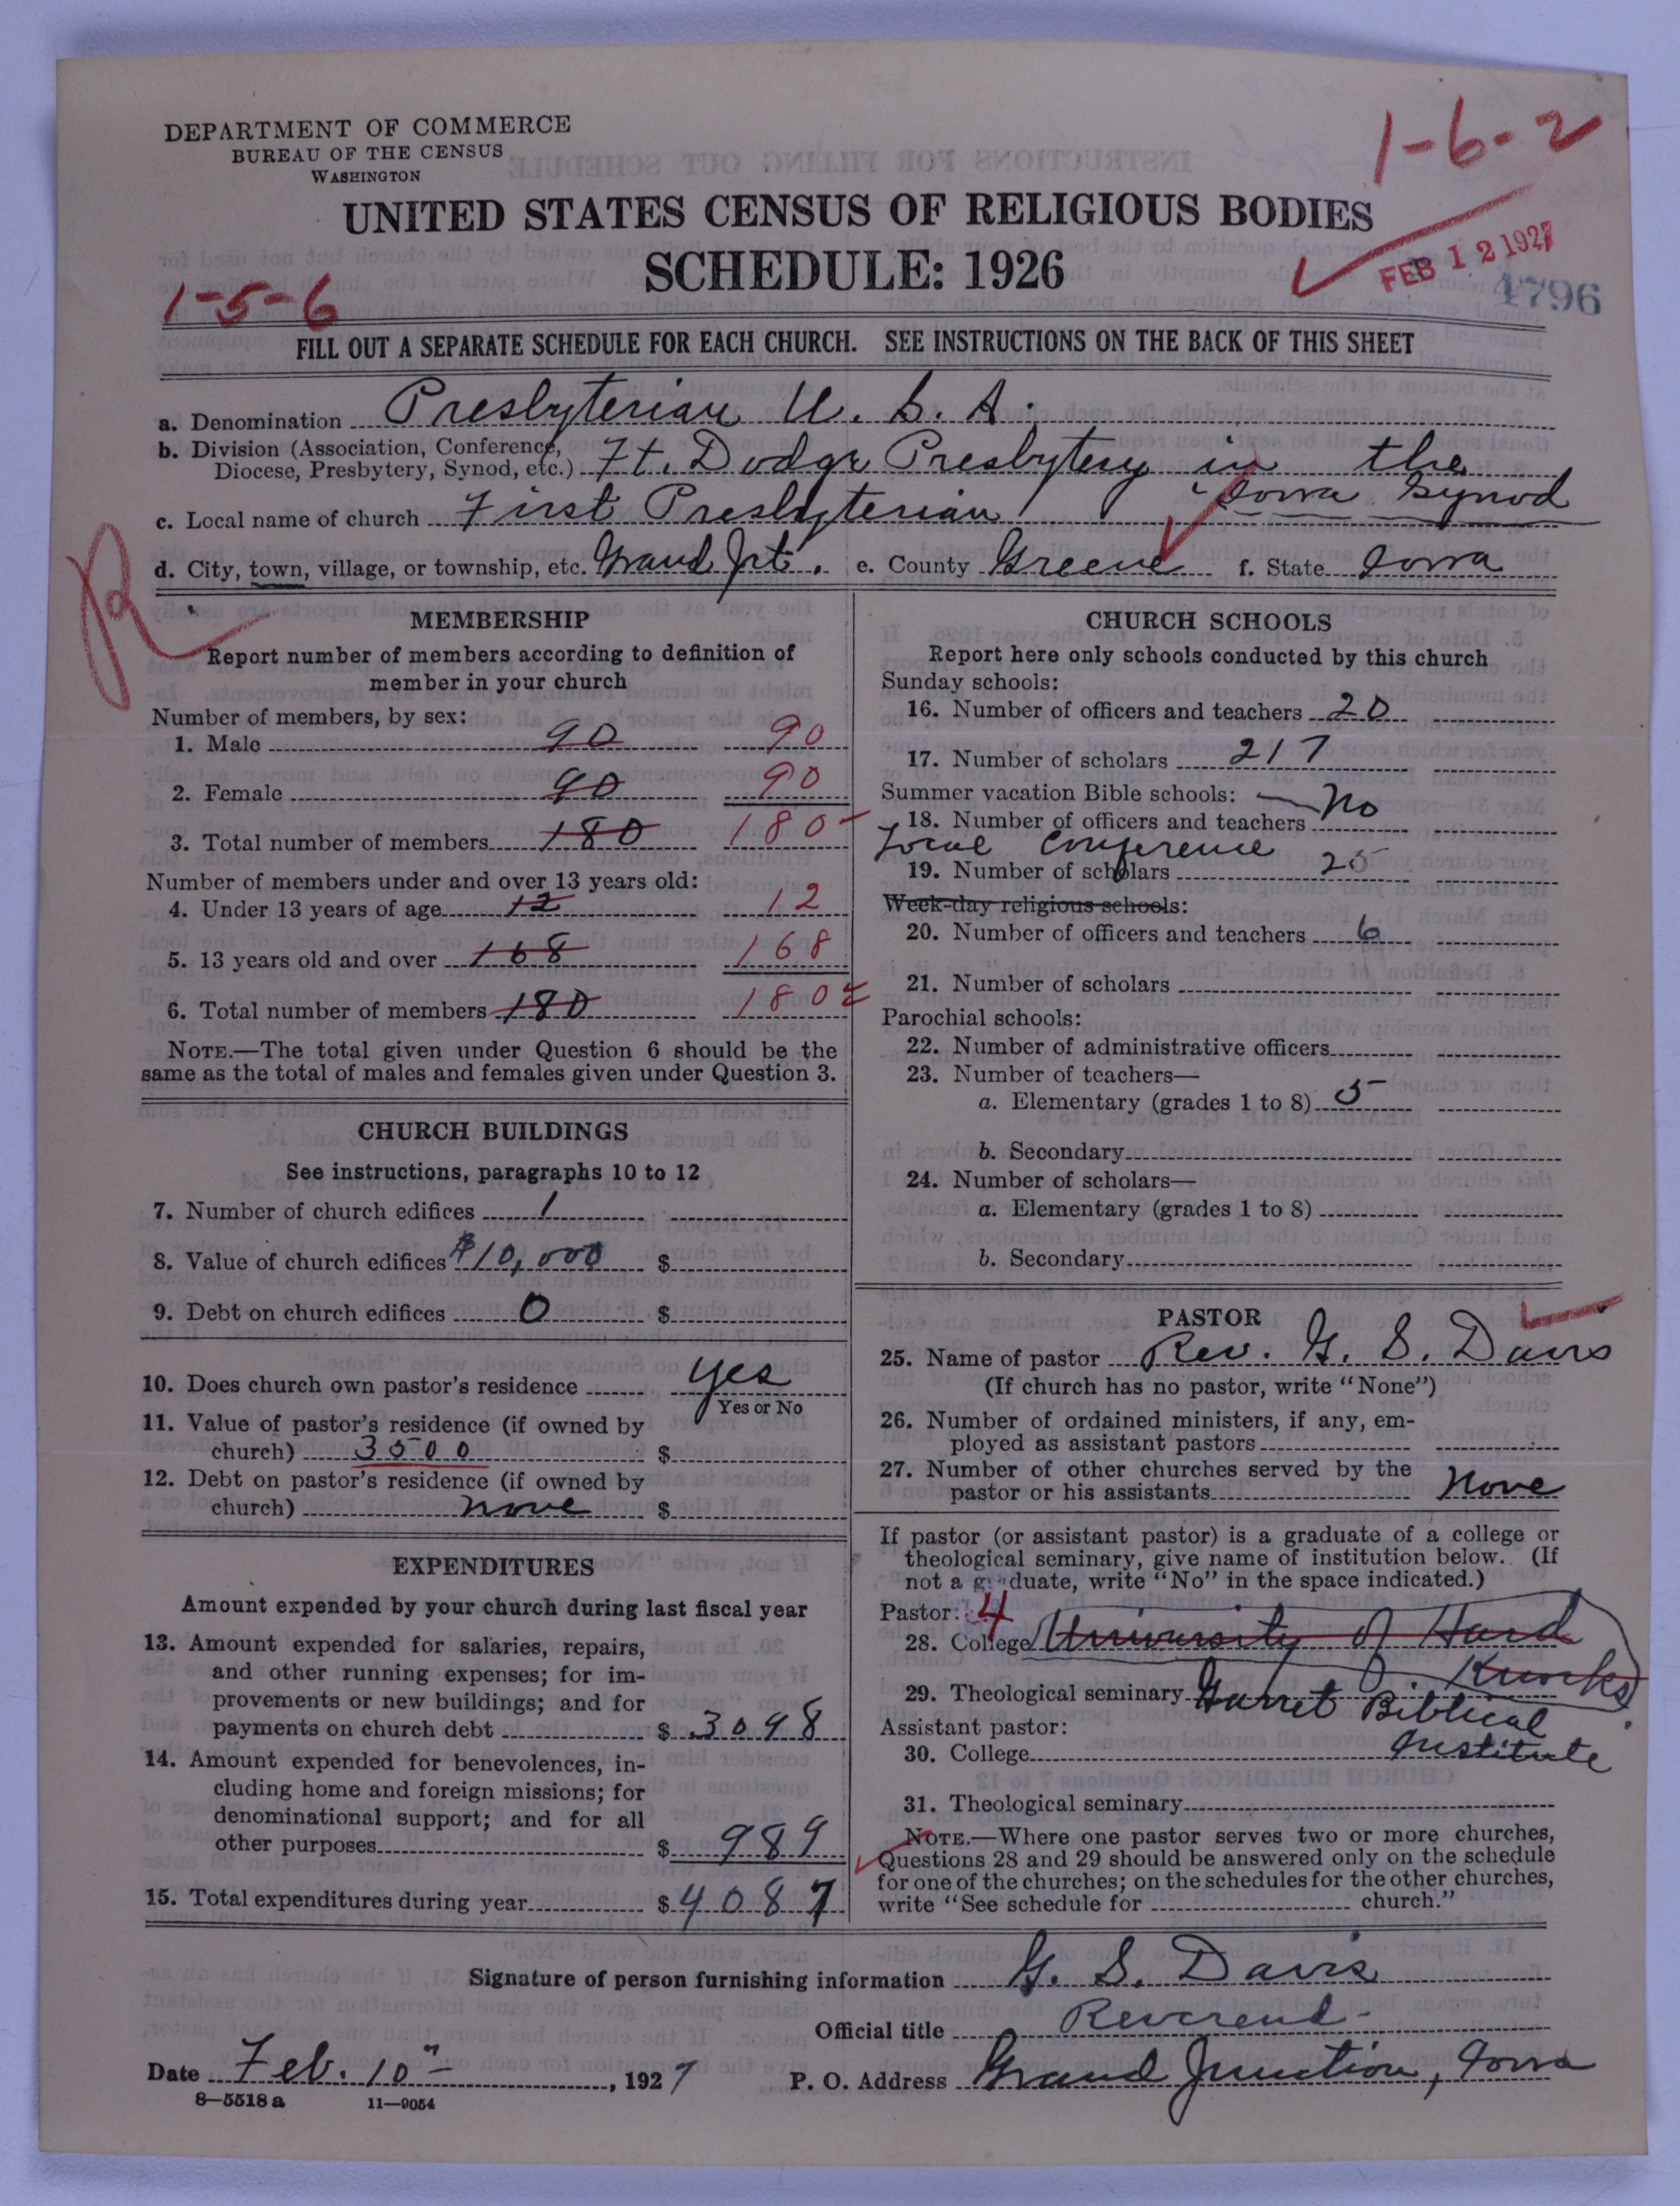 DEPARTMENT OF COMMERCE
BUREAU OF THE CENSUS
WASHINGTON
1-6-2
UNITED STATES CENSUS OF RELIGIOUS BODIES
SCHEDULE: 1926
FEB 12 1927
4796
1-5-6
FILL OUT A SEPARATE SCHEDULE FOR EACH CHURCH. SEE INSTRUCTIONS ON THE BACK OF THIS SHEET
a. Denomination Presbyterian U. S. A.
b. Division (Association, Conference,
Diocese, Presbytery, Synod, etc.) Ft. Dodge Presbytery in the
Iowa Synod
c. Local name of church First Presbyterian
d. City, town, village, or township, etc. Grand Jct. e. County Greene f. State Iowa
R
MEMBERSHIP
Report number of members according to definition of
member in your church
Number of members, by sex:
1. Male 90 90
2. Female 90 90
3. Total number of members 180 180
Number of members under and over 13 years old:
4. Under 13 years of age 12 12
5. 13 years old and over 168 168
6. Total number of members 180 180
NOTE.—The total given under Question 6 should be the
same as the total of males and females given under Question 3.
CHURCH BUILDINGS
See instructions, paragraphs 10 to 12
7. Number of church edifices 1
8. Value of church edifices $10,000 $
9. Debt on church edifices 0 $
10. Does church own pastor's residence yes
Yes or No
11. Value of pastor's residence (if owned by
church) 3500 $
12. Debt on pastor's residence (if owned by
church) none $
EXPENDITURES
Amount expended by your church during last fiscal year
13. Amount expended for salaries, repairs,
and other running expenses; for im-
provements or new buildings; and for
payments on church debt $ 3098
14. Amount expended for benevolences, in-
cluding home and foreign missions; for
denominational support; and for all
other purposes $ 989
15. Total expenditures during year $ 4087
CHURCH SCHOOLS
Report here only schools conducted by this church
Sunday schools:
16. Number of officers and teachers 20
17. Number of scholars 217
Summer vacation Bible schools: — No
18. Number of officers and teachers
Local Conference
19. Number of scholars 25
Week-day religious schools:
20. Number of officers and teachers 6
21. Number of scholars
Parochial schools:
22. Number of administrative officers
23. Number of teachers—
a. Elementary (grades 1 to 8) 5
b. Secondary
24. Number of scholars—
a. Elementary (grades 1 to 8)
b. Secondary
PASTOR
25. Name of pastor Rev. G. S. Davis
(If church has no pastor, write "None")
26. Number of ordained ministers, if any, em-
ployed as assistant pastors
27. Number of other churches served by the
pastor or his assistants None
If pastor (or assistant pastor) is a graduate of a college or
theological seminary, give name of institution below. (If
not a graduate, write "No" in the space indicated.)
Pastor: 4
28. College University of Hard
Knocks
29. Theological seminary Garret Biblical
Institute
Assistant pastor:
30. College
31. Theological seminary
NOTE.—Where one pastor serves two or more churches,
Questions 28 and 29 should be answered only on the schedule
for one of the churches; on the schedules for the other churches,
write "See schedule for church."
Signature of person furnishing information G. S. Davis
Official title Reverend
Date Feb. 10", 1927 P. O. Address Grand Junction, Iowa
8—5518 a 11—9054